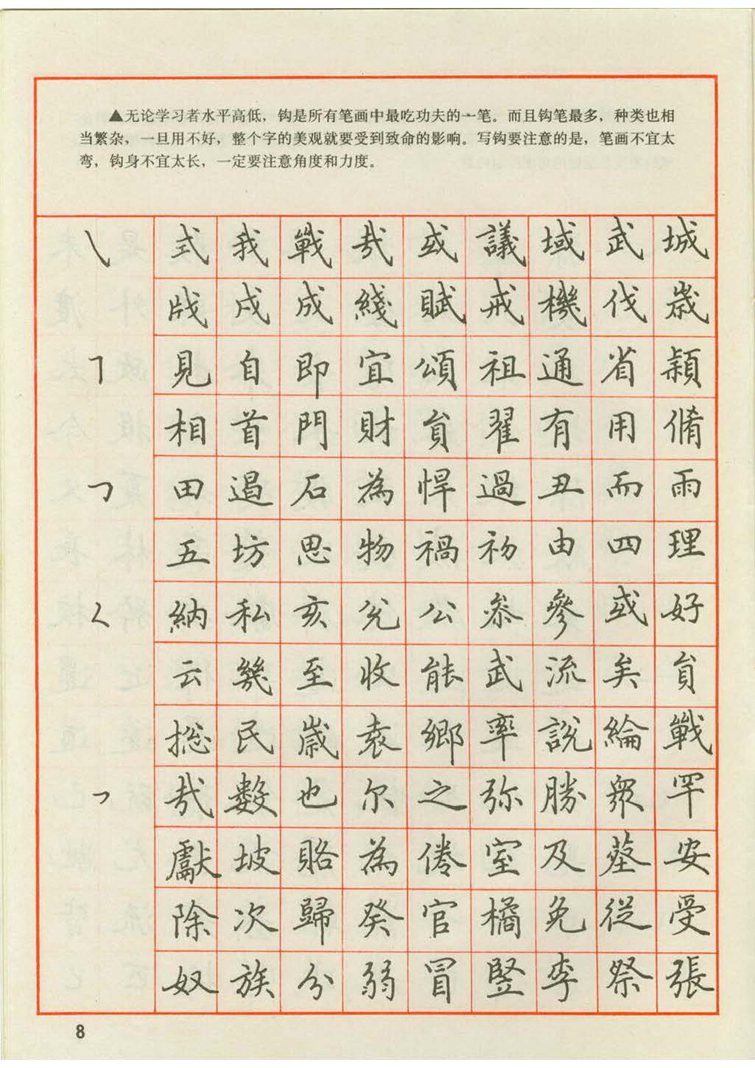 ▲无论学习者水平高低，钩是所有笔画中最吃功夫的一笔。而且钩笔最多，种类也相
当繁杂，一旦用不好，整个字的美观就要受到致命的影响。写钩要注意的是，笔画不宜太
弯，钩身不宜太长，一定要注意角度和力度。
式 我 戰 哉 或 議 域 武 城
戌 成 綫 賦 戒 機 伐 歲
見 自 即 宜 頌 祖 通 省 穎
相 首 門 財 負 翟 有 用 脩
田 遏 石 為 悍 過 丑 而 雨
五 坊 思 物 禍 初 由 四 理
納 私 亥 兖 公 叅 參 或 好
云 幾 至 收 能 武 流 矣 員
揔 民 歲 袁 鄉 率 說 綸 戰
哉 數 也 尔 之 弥 勝 眾 罕
獻 坡 賂 為 倦 室 及 葬 安
除 次 歸 癸 官 橘 免 從 受
奴 族 分 弱 冒 竪 李 祭 張
8